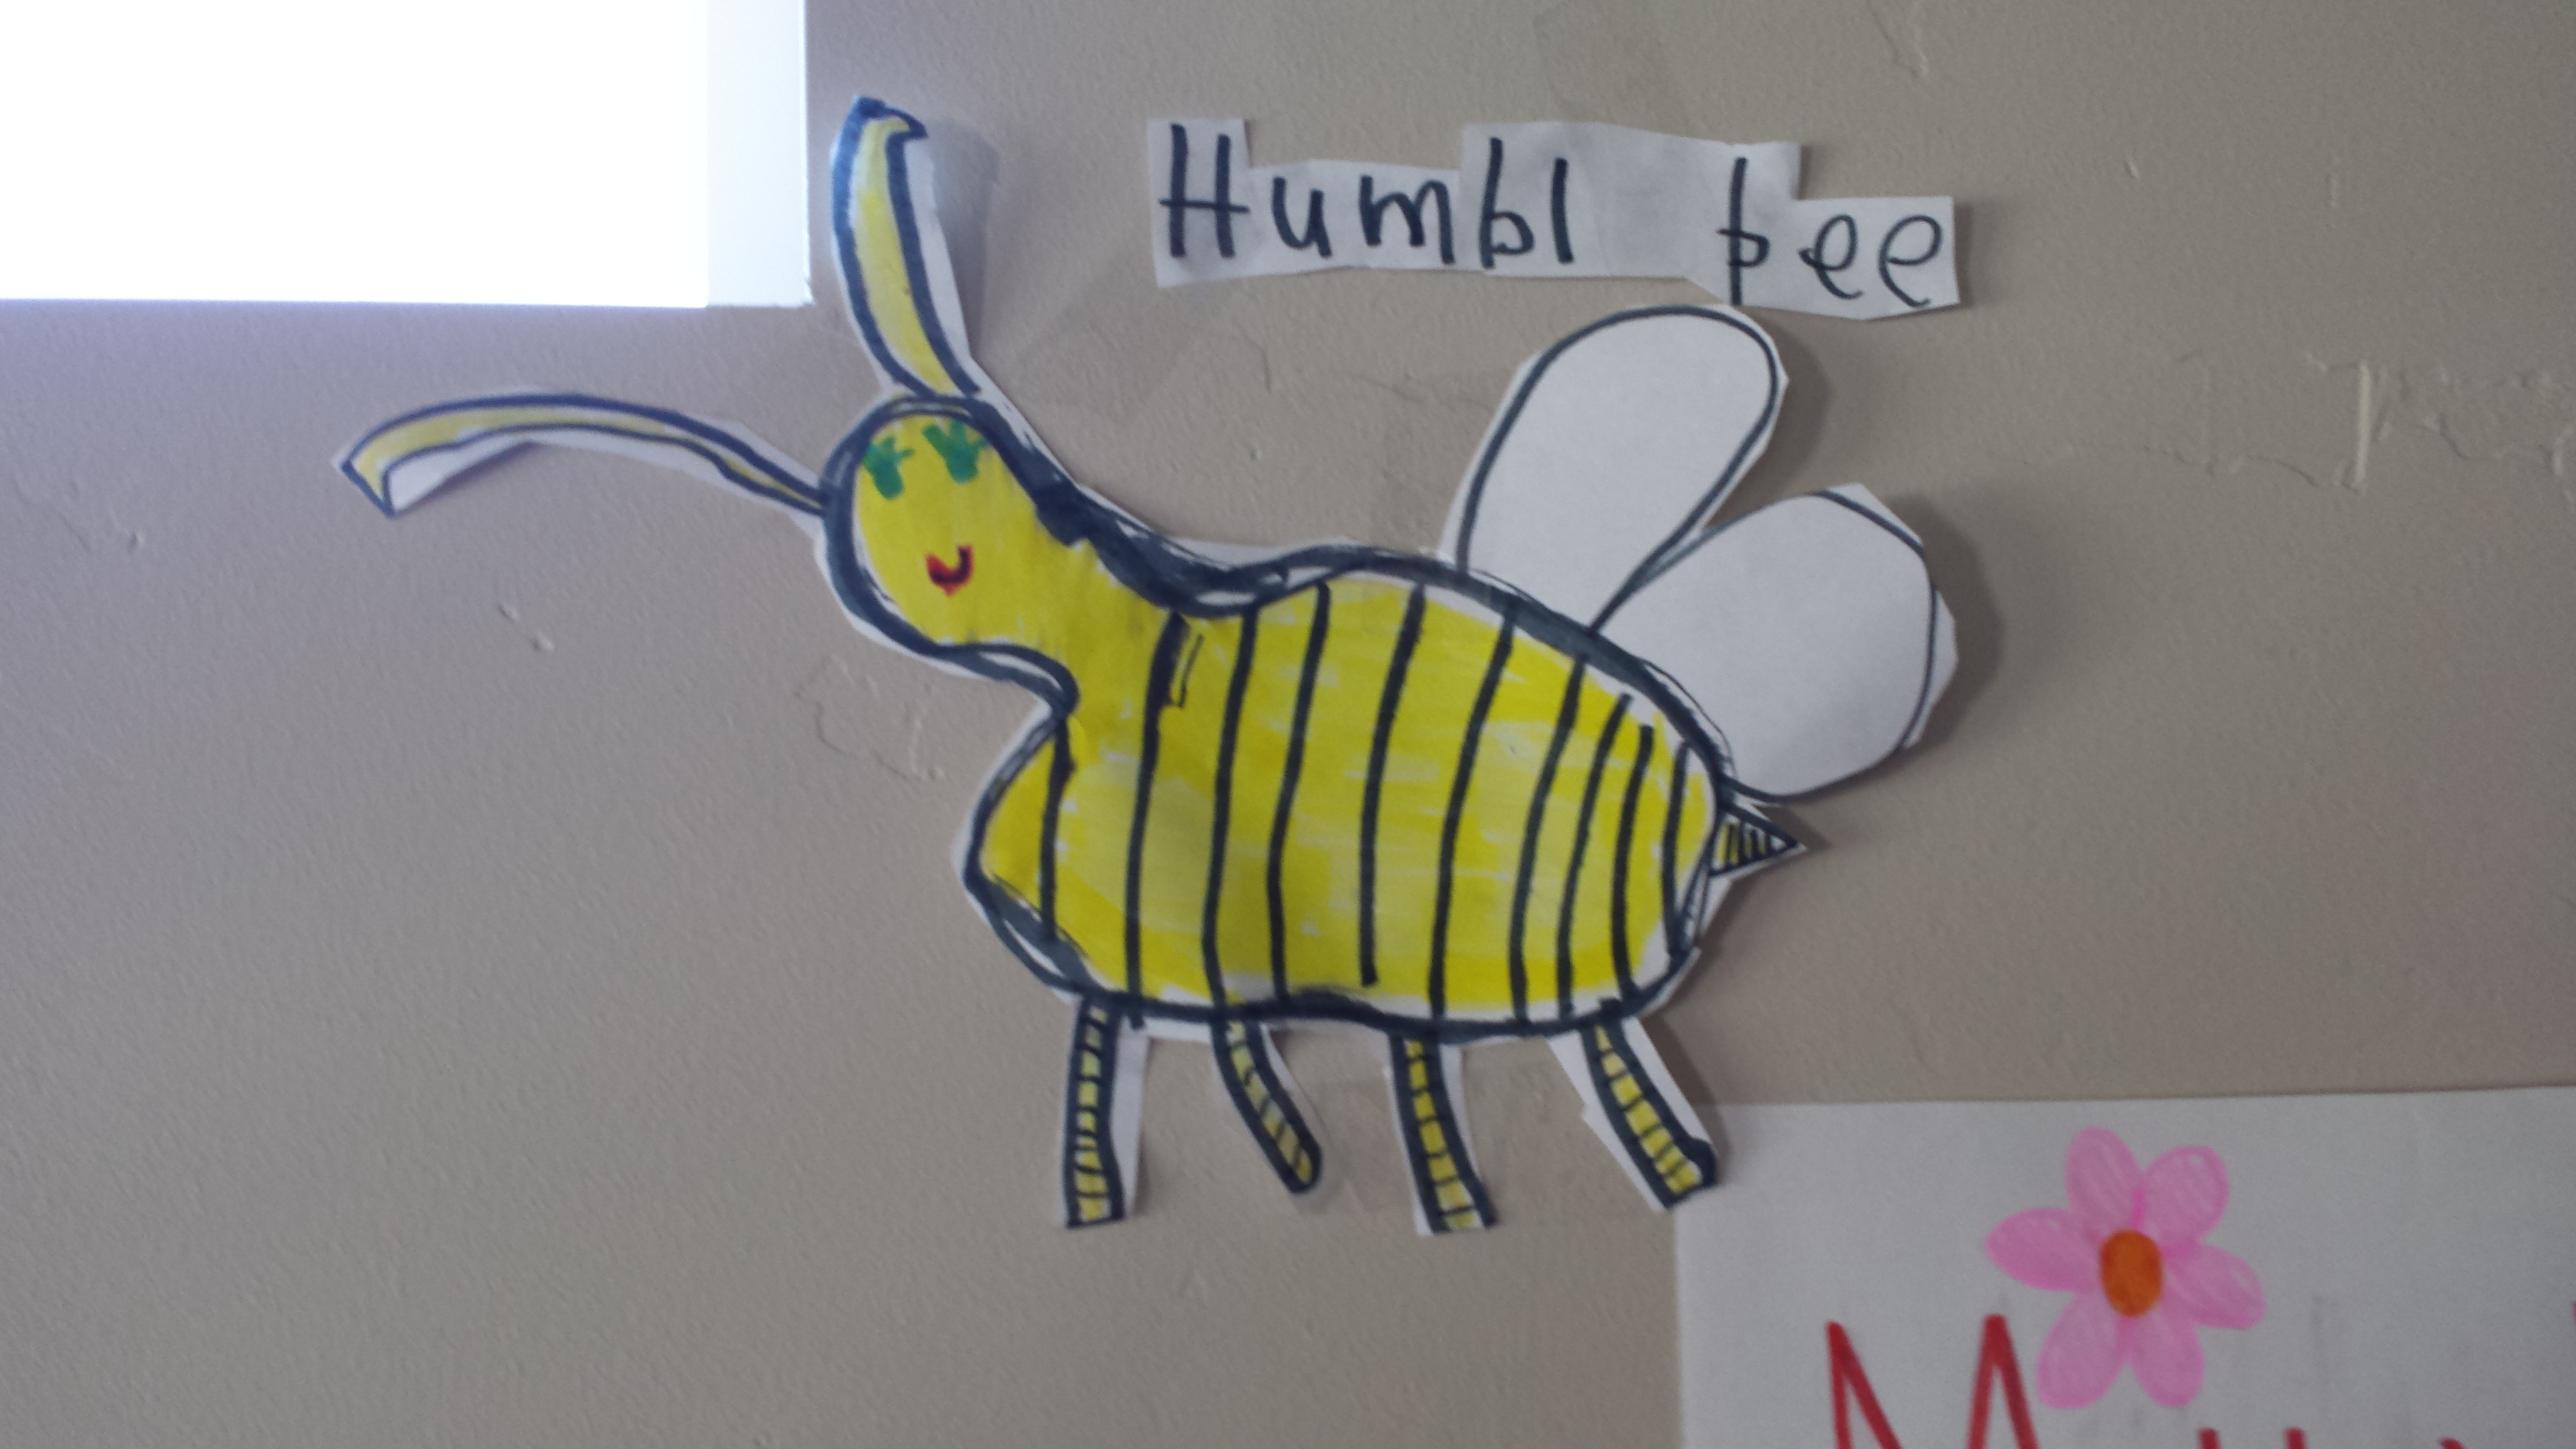 Humbl bee
M